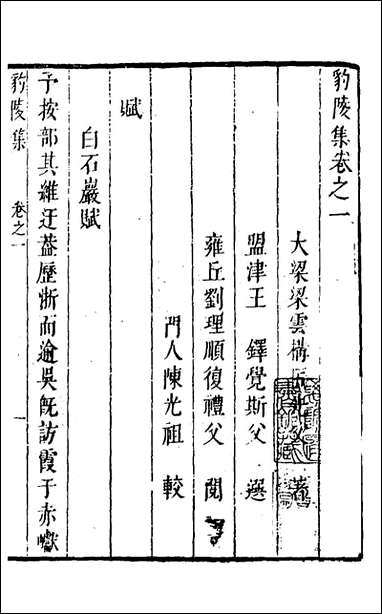 豹陵集卷之一
大梁梁雲構
盟津王 鐸覺斯父 選
雍丘劉理順復禮父 閱
門人陳光祖 較
賦
白石巖賦
予按部其維迂葢歷浙而逾吳旣訪霞于赤巘
豹陵集 卷之一 一